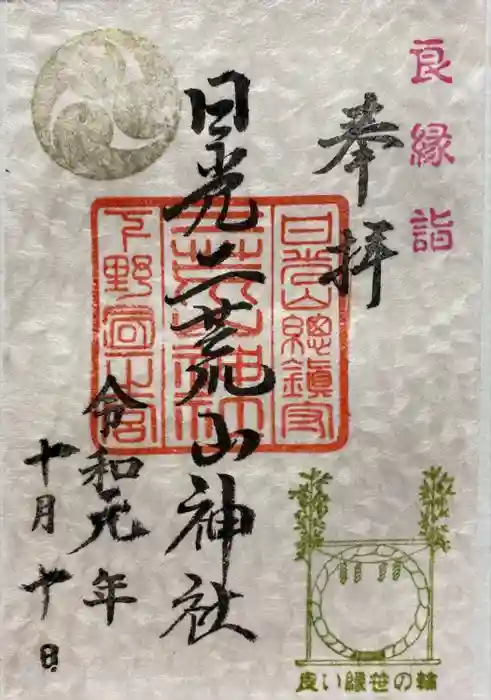 良縁詣
奉拝
日光二荒山神社
令和元年
十月 日
日光山總鎮守
二荒山神社
下野國一之宮
良い縁笹の輪